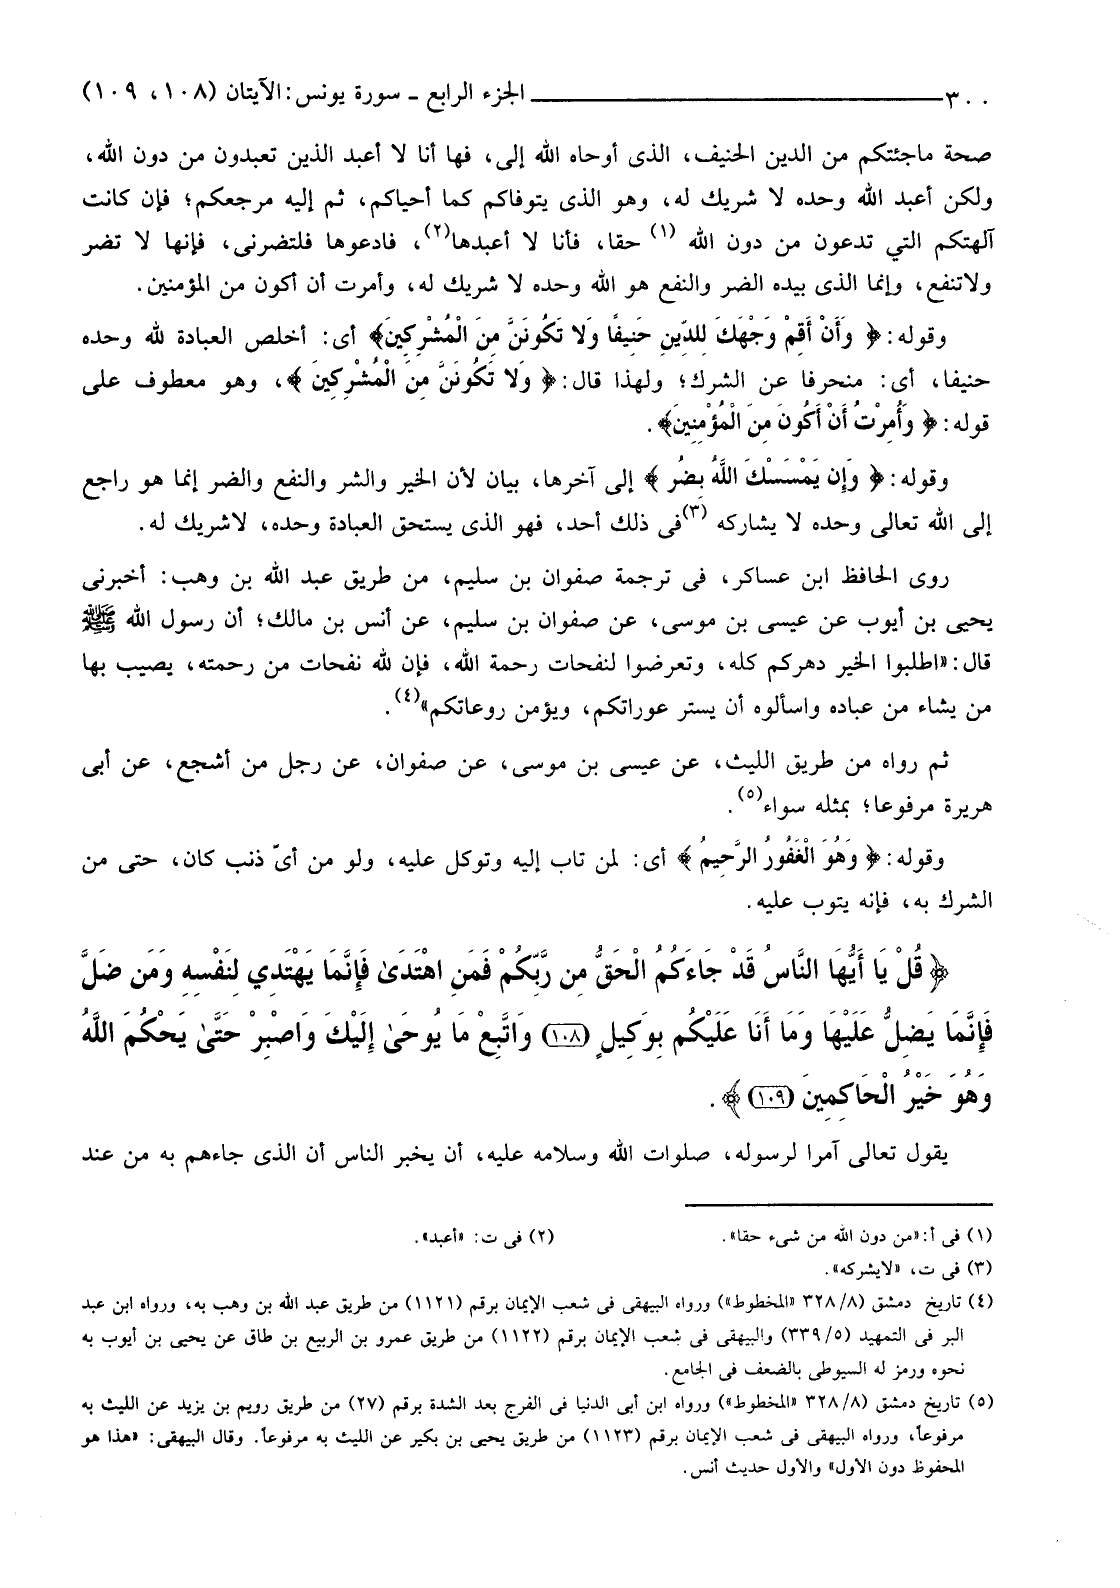 ٣٠٠ ــــــــــــ الجزء الرابع ـ سورة يونس: الآيتان (١٠٨، ١٠٩)
صحة ماجئتكم من الدين الحنيف، الذى أوحاه الله إلى، فها أنا لا أعبد الذين تعبدون من دون الله،
ولكن أعبد الله وحده لا شريك له، وهو الذى يتوفاكم كما أحياكم، ثم إليه مرجعكم؛ فإن كانت
آلهتكم التي تدعون من دون الله (١) حقا، فأنا لا أعبدها(٢)، فادعوها فلتضرنى، فإنها لا تضر
ولاتنفع، وإنما الذى بيده الضر والنفع هو الله وحده لا شريك له، وأمرت أن أكون من المؤمنين.
وقوله: ﴿ وَأَنْ أَقِمْ وَجْهَكَ لِلدِّينِ حَنِيفًا وَلا تَكُونَنَّ مِنَ الْمُشْرِكِينَ﴾ أى: أخلص العبادة لله وحده
حنيفا، أى: منحرفا عن الشرك؛ ولهذا قال: ﴿ وَلا تَكُونَنَّ مِنَ الْمُشْرِكِينَ ﴾، وهو معطوف على
قوله: ﴿ وَأُمِرْتُ أَنْ أَكُونَ مِنَ الْمُؤْمِنِينَ﴾.
وقوله: ﴿ وَإِن يَمْسَسْكَ اللَّهُ بِضُر ﴾ إلى آخرها، بيان لأن الخير والشر والنفع والضر إنما هو راجع
إلى الله تعالى وحده لا يشاركه (٣)فى ذلك أحد، فهو الذى يستحق العبادة وحده، لاشريك له.
روى الحافظ ابن عساكر، فى ترجمة صفوان بن سليم، من طريق عبد الله بن وهب: أخبرنى
يحيى بن أيوب عن عيسى بن موسى، عن صفوان بن سليم، عن أنس بن مالك؛ أن رسول الله ﷺ
قال: «اطلبوا الخير دهركم كله، وتعرضوا لنفحات رحمة الله، فإن لله نفحات من رحمته، يصيب بها
من يشاء من عباده واسألوه أن يستر عوراتكم، ويؤمن روعاتكم»(٤).
ثم رواه من طريق الليث، عن عيسى بن موسى، عن صفوان، عن رجل من أشجع، عن أبى
هريرة مرفوعا؛ بمثله سواء(٥).
وقوله: ﴿ وَهُوَ الْغَفُورُ الرَّحِيمُ ﴾ أى: لمن تاب إليه وتوكل عليه، ولو من أىّ ذنب كان، حتى من
الشرك به، فإنه يتوب عليه.
﴿ قُلْ يَا أَيُّهَا النَّاسُ قَدْ جَاءَكُمُ الْحَقُّ مِن رَّبِّكُمْ فَمَنِ اهْتَدَىٰ فَإِنَّمَا يَهْتَدِي لِنَفْسِهِ وَمَن ضَلَّ
فَإِنَّمَا يَضِلُّ عَلَيْهَا وَمَا أَنَا عَلَيْكُم بِوَكِيلٍ (١٠٨) وَاتَّبِعْ مَا يُوحَىٰ إِلَيْكَ وَاصْبِرْ حَتَّىٰ يَحْكُمَ اللَّهُ
وَهُوَ خَيْرُ الْحَاكِمِينَ (١٠٩) ﴾.
يقول تعالى آمرا لرسوله، صلوات الله وسلامه عليه، أن يخبر الناس أن الذى جاءهم به من عند
(١) فى أ: «من دون الله من شىء حقا». (٢) فى ت: «أعبد».
(٣) فى ت، «لايشركه».
(٤) تاريخ دمشق (٣٢٨/٨ «المخطوط») ورواه البيهقى فى شعب الإيمان برقم (١١٢١) من طريق عبد الله بن وهب به، ورواه ابن عبد
البر فى التمهيد (٣٣٩/٥) والبيهقى فى شعب الإيمان برقم (١١٢٢) من طريق عمرو بن الربيع بن طاق عن يحيى بن أيوب به
نحوه ورمز له السيوطى بالضعف فى الجامع.
(٥) تاريخ دمشق (٣٢٨/٨ «المخطوط») ورواه ابن أبى الدنيا فى الفرج بعد الشدة برقم (٢٧) من طريق رويم بن يزيد عن الليث به
مرفوعاً، ورواه البيهقى فى شعب الإيمان برقم (١١٢٣) من طريق يحيى بن بكير عن الليث به مرفوعاً. وقال البيهقى: «هذا هو
المحفوظ دون الأول» والأول حديث أنس.